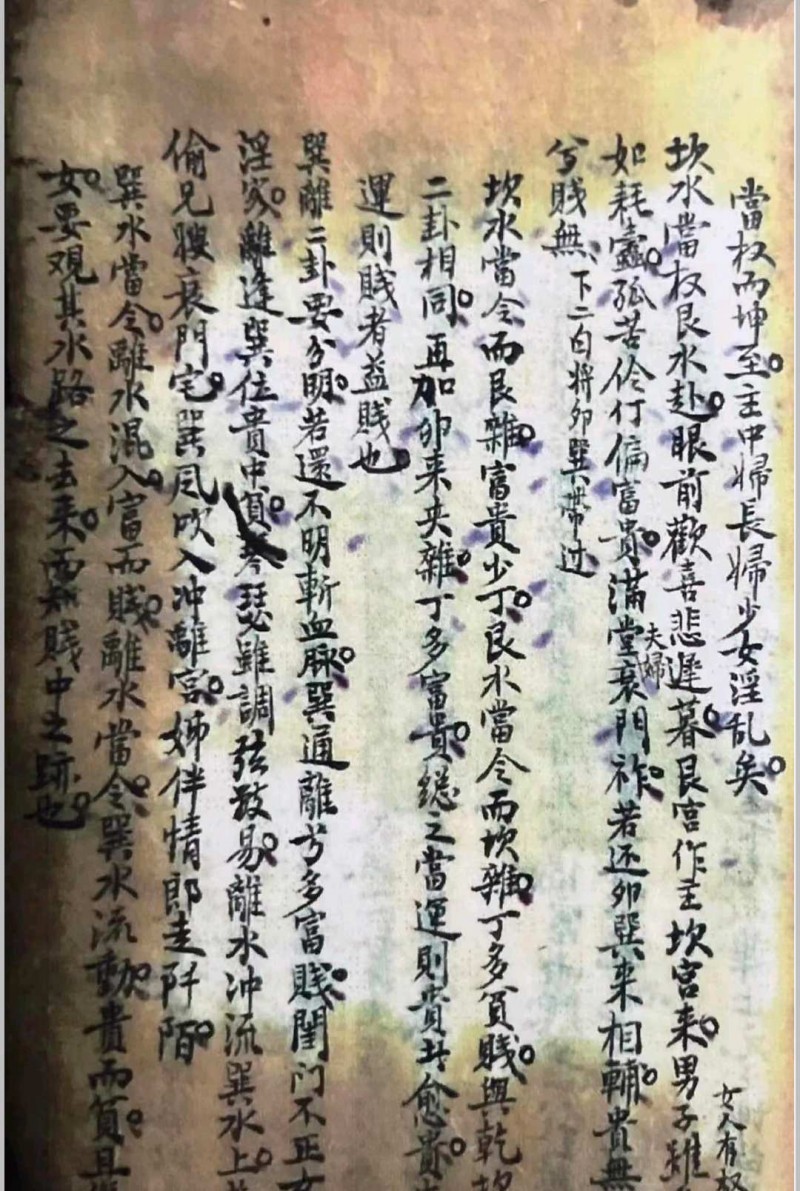 當权而坤至。主中婦長婦少女淫乱矣。
女人有
坎水當权艮水赴。眼前歡喜悲遲暮。艮宮作主坎宮来。男子雖
夫婦
如耗蠹。孤苦伶仃偏富贵。滿堂衰門祚。若还卯巽来相輔。貴無
兮賤無
下二白将卯巽带过
坎水當令而艮雜。富貴少丁。艮水當令而坎雜。丁多貧賤。與乾坎
二卦相同。再加卯来夹雜。丁多富貴。總之當運則貴者愈貴。
運則賤者益賤也。
巽離二卦要分明。若還不明斬血脉。巽通離兮多富賤。閨门不正女
淫家。離逢巽位貴中貧。琴瑟雖調弦致易。離水冲流巽水上。
偷兄嫂衰門宅。巽風吹入冲離宮。姊伴情郎走阡陌。
巽水當令。離水混入。富而賤。離水當令。巽水流動。貴而貧。且
女。要观其水路之去来。而知賤中之跡也。